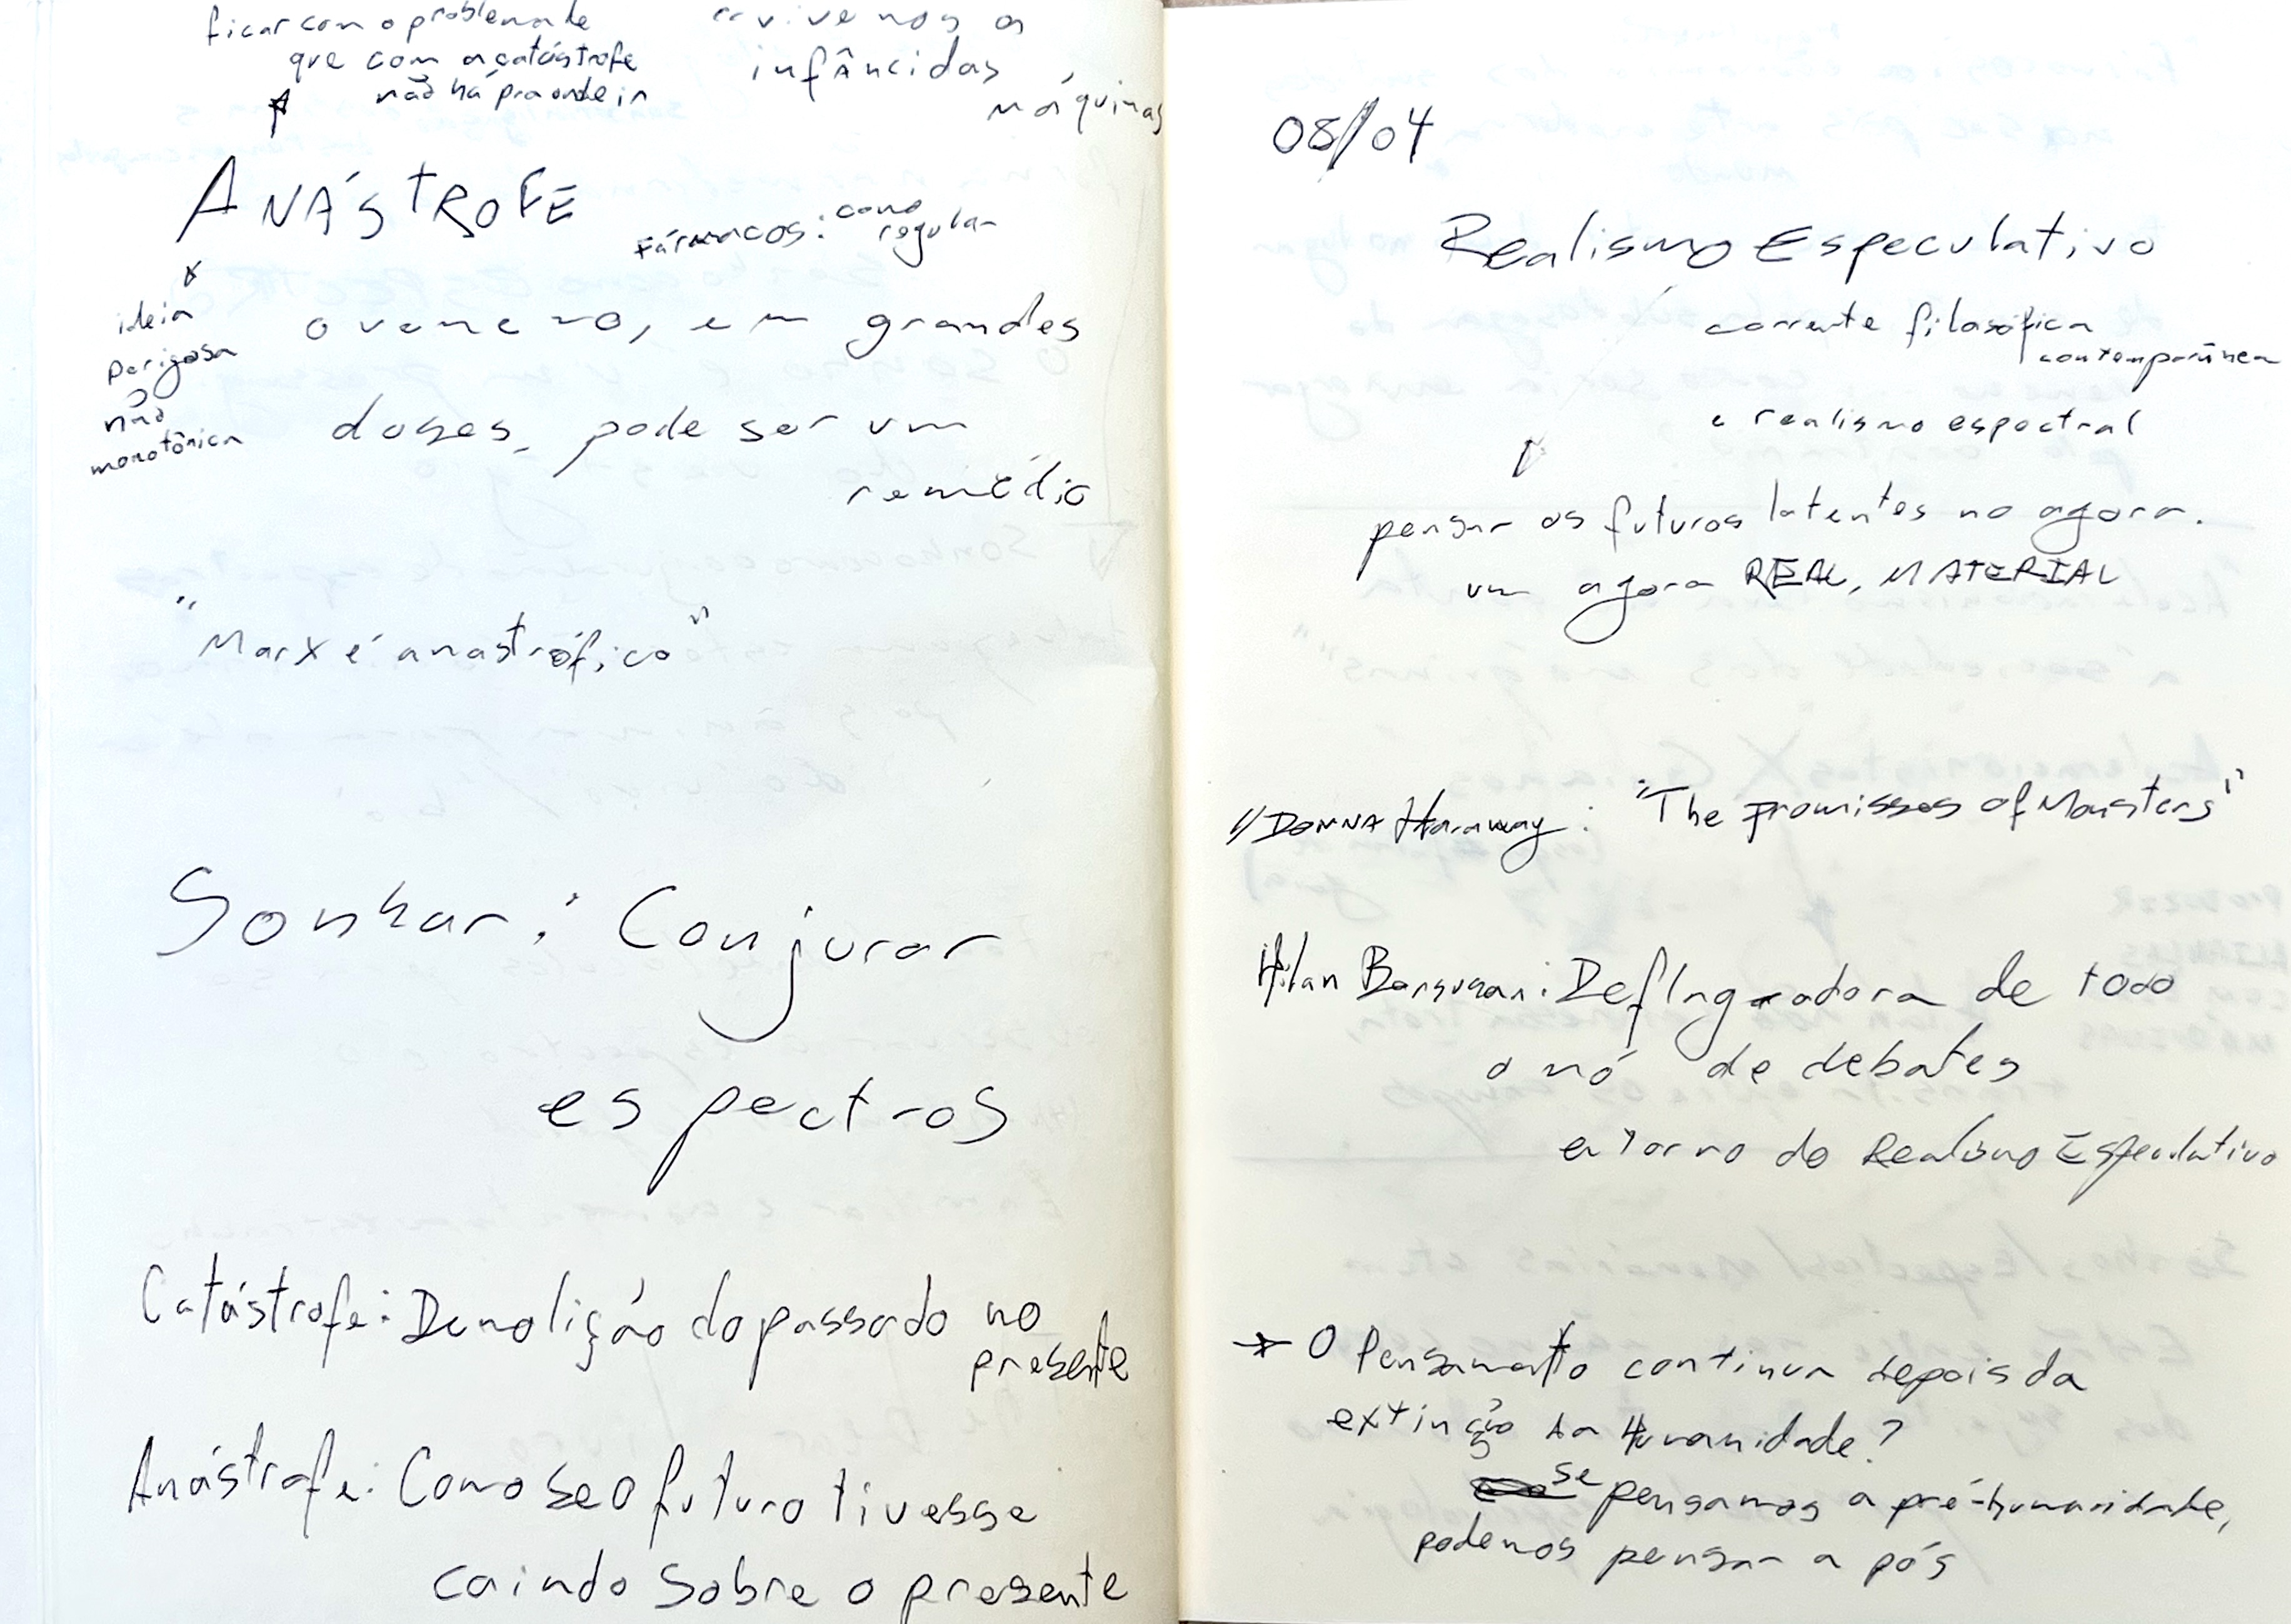 ficar com o problema de
que com a catástrofe
não há pra onde ir
vivemos a
infâncidas
máquinas
ANÁSTROFE
FÁRMACOS: como
regular
ideia
perigosa
não
monotônica
o veneno, em grandes
doses, pode ser um
remédio
"Marx é anastrófico"
Sonhar: Conjurar
espectros
Catástrofe: Demolição do passado no
presente
Anástrofe: Como se o futuro tivesse
caindo sobre o presente
08/04
Realismo Especulativo
corrente filosófica
contemporânea
e realismo espectral
pensar os futuros latentes no agora.
um agora REAL, MATERIAL
// DONNA Haraway: "The promisses of Monsters"
Hilan Bensusan: Deflagradora de todo
o nó de debates
entorno do Realismo Especulativo
→ O Pensamento continua depois da
extinção da Humanidade?
se pensamos a pré-humanidade,
podemos pensar a pós